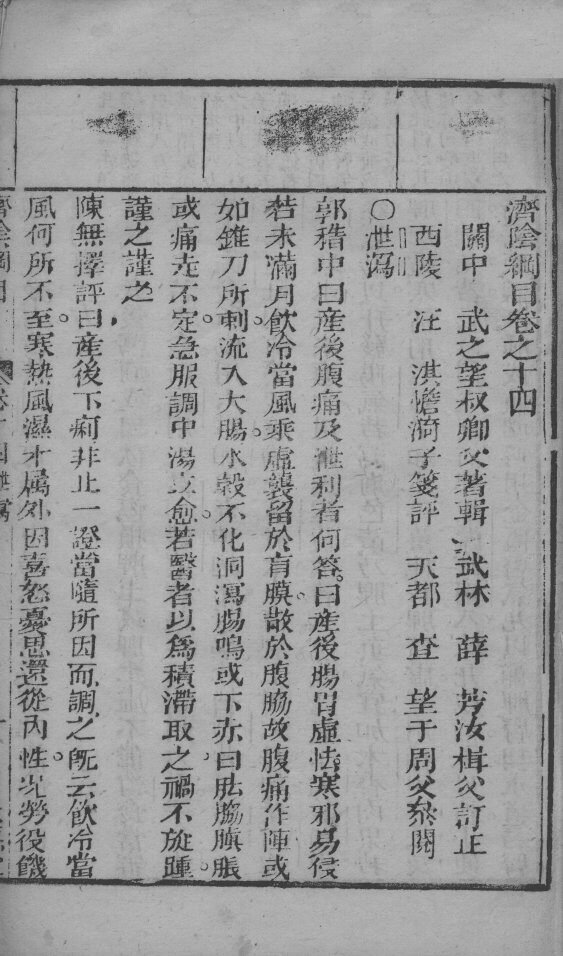 濟陰綱目卷之十四
關中 武之望叔卿父著輯 武林 薛 芳汝楫父訂正
西陵 汪 淇憺漪子箋評 天都 查 望于周父叅閱
○泄瀉
郭稽中曰産後腹痛及泄利者何答曰産後腸胃虛怯寒邪易侵
若未滿月飲冷當風乘虛襲留於肓膜散於腹脇故腹痛作陣或
如錐刀所刺流入大腸水榖不化洞瀉腸鳴或下赤白胠脇䐜脹
或痛走不定急服調中湯立愈若醫者以爲積滯取之禍不旋踵
謹之謹之
陳無擇評曰産後下痢非止一證當隨所因而調之旣云飲冷當
風何所不至寒熱風濕才属外因喜怒憂思還從內性况勞役饑
濟陰綱目